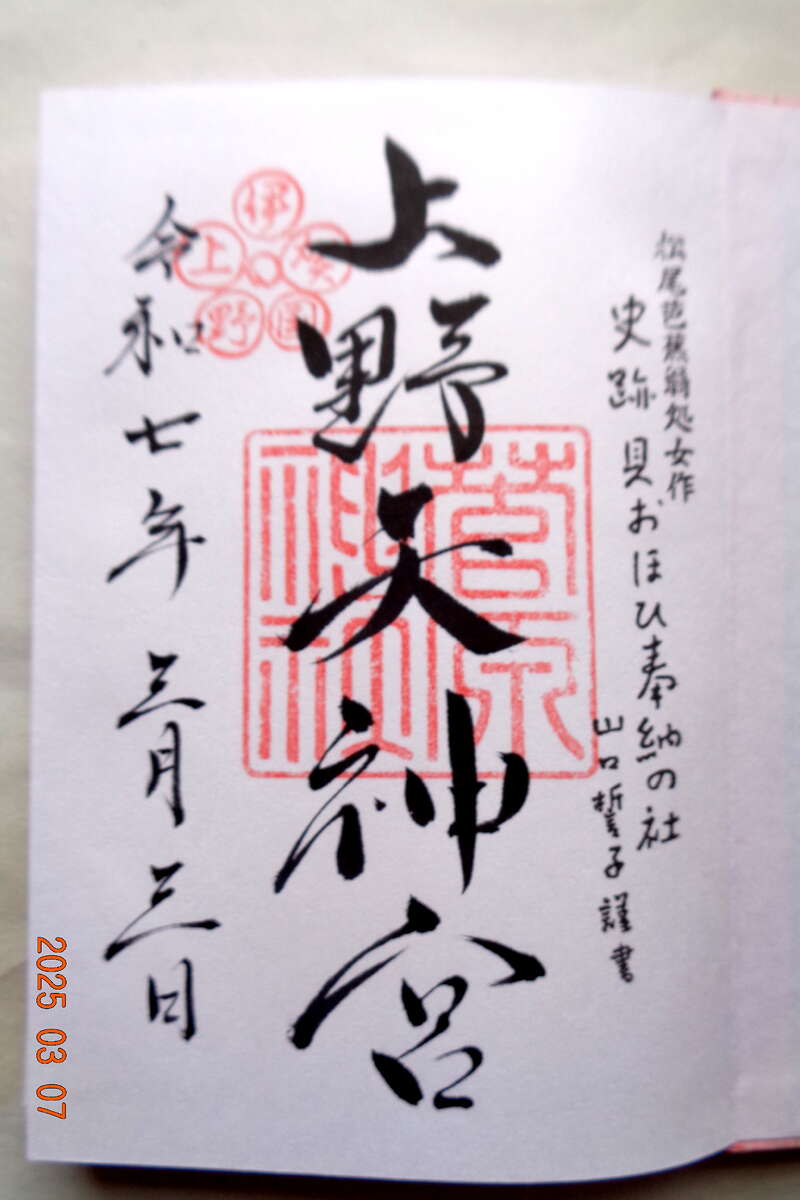 松尾芭蕉翁処女作
史跡 貝おほひ奉納の社
山口誓子 謹書
上野天神宮
令和七年三月三日
伊
上
野
菅原神社
2025 03 07